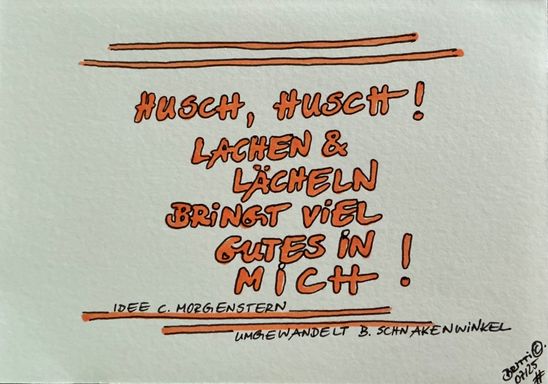 HUSCH, HUSCH!
LACHEN &
LÄCHELN
BRINGT VIEL
GUTES IN
MICH!
IDEE C. MORGENSTERN
UMGEWANDELT B. SCHNAKENWINKEL
©.
07/25